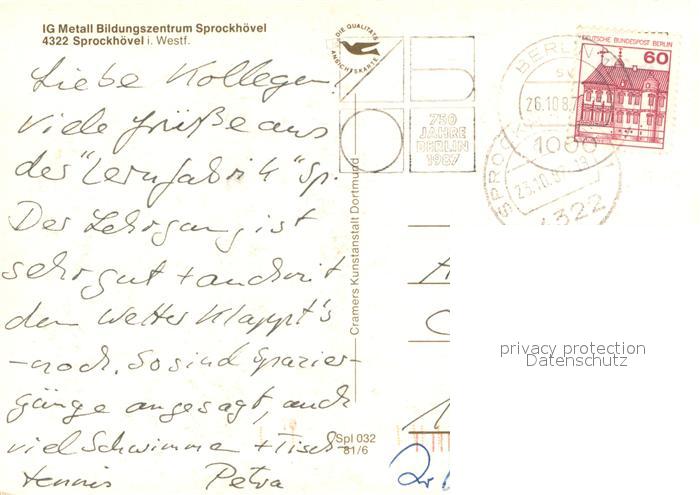 IG Metall Bildungszentrum Sprockhövel
4322 Sprockhövel i. Westf.
DIE QUALITÄTS
ANSICHTSKARTE
Liebe Kollegen!
viele Grüße aus
der "Lernfabrik" Sp.
Der Lehrgang ist
sehr gut + auch mit
dem Wetter klappt's
-noch. So sind Spazier-
gänge angesagt, auch
viel Schwimmen + Tisch-
tennis Petra
Cramers Kunstanstalt Dortmund
Spl 032
81/6
750
JAHRE
BERLIN
1987
BERLIN
26.10.87
1000
DEUTSCHE BUNDESPOST BERLIN
60
SPROCK
23.10.87
4322
privacy protection
Datenschutz